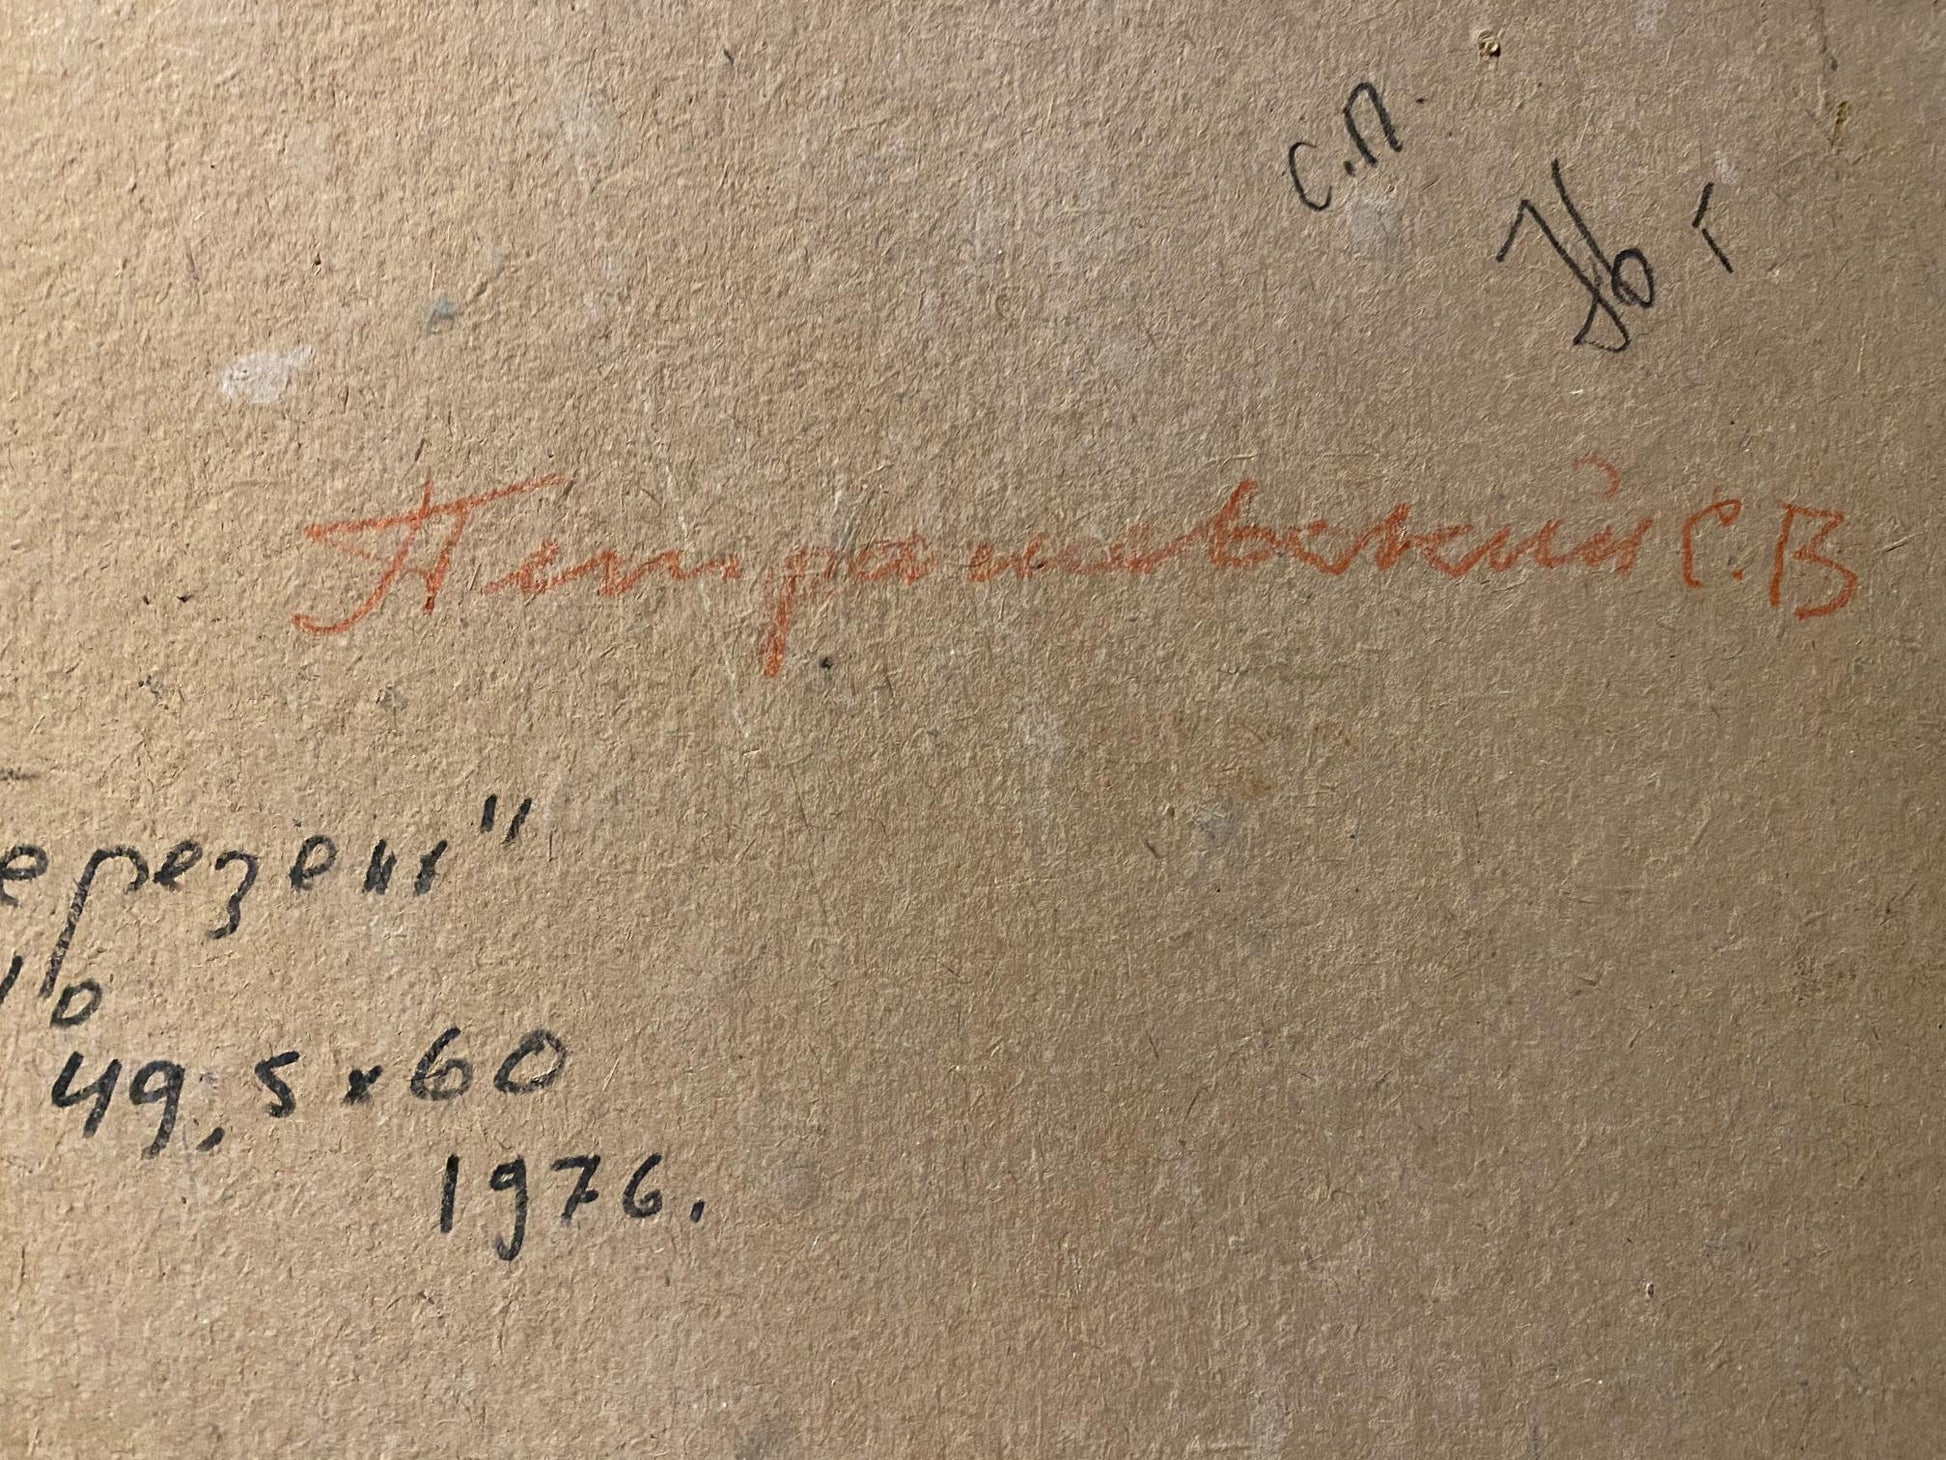 С.П.
76 г
Петрашевский С.В
ерезень"
49,5 x 60
1976.